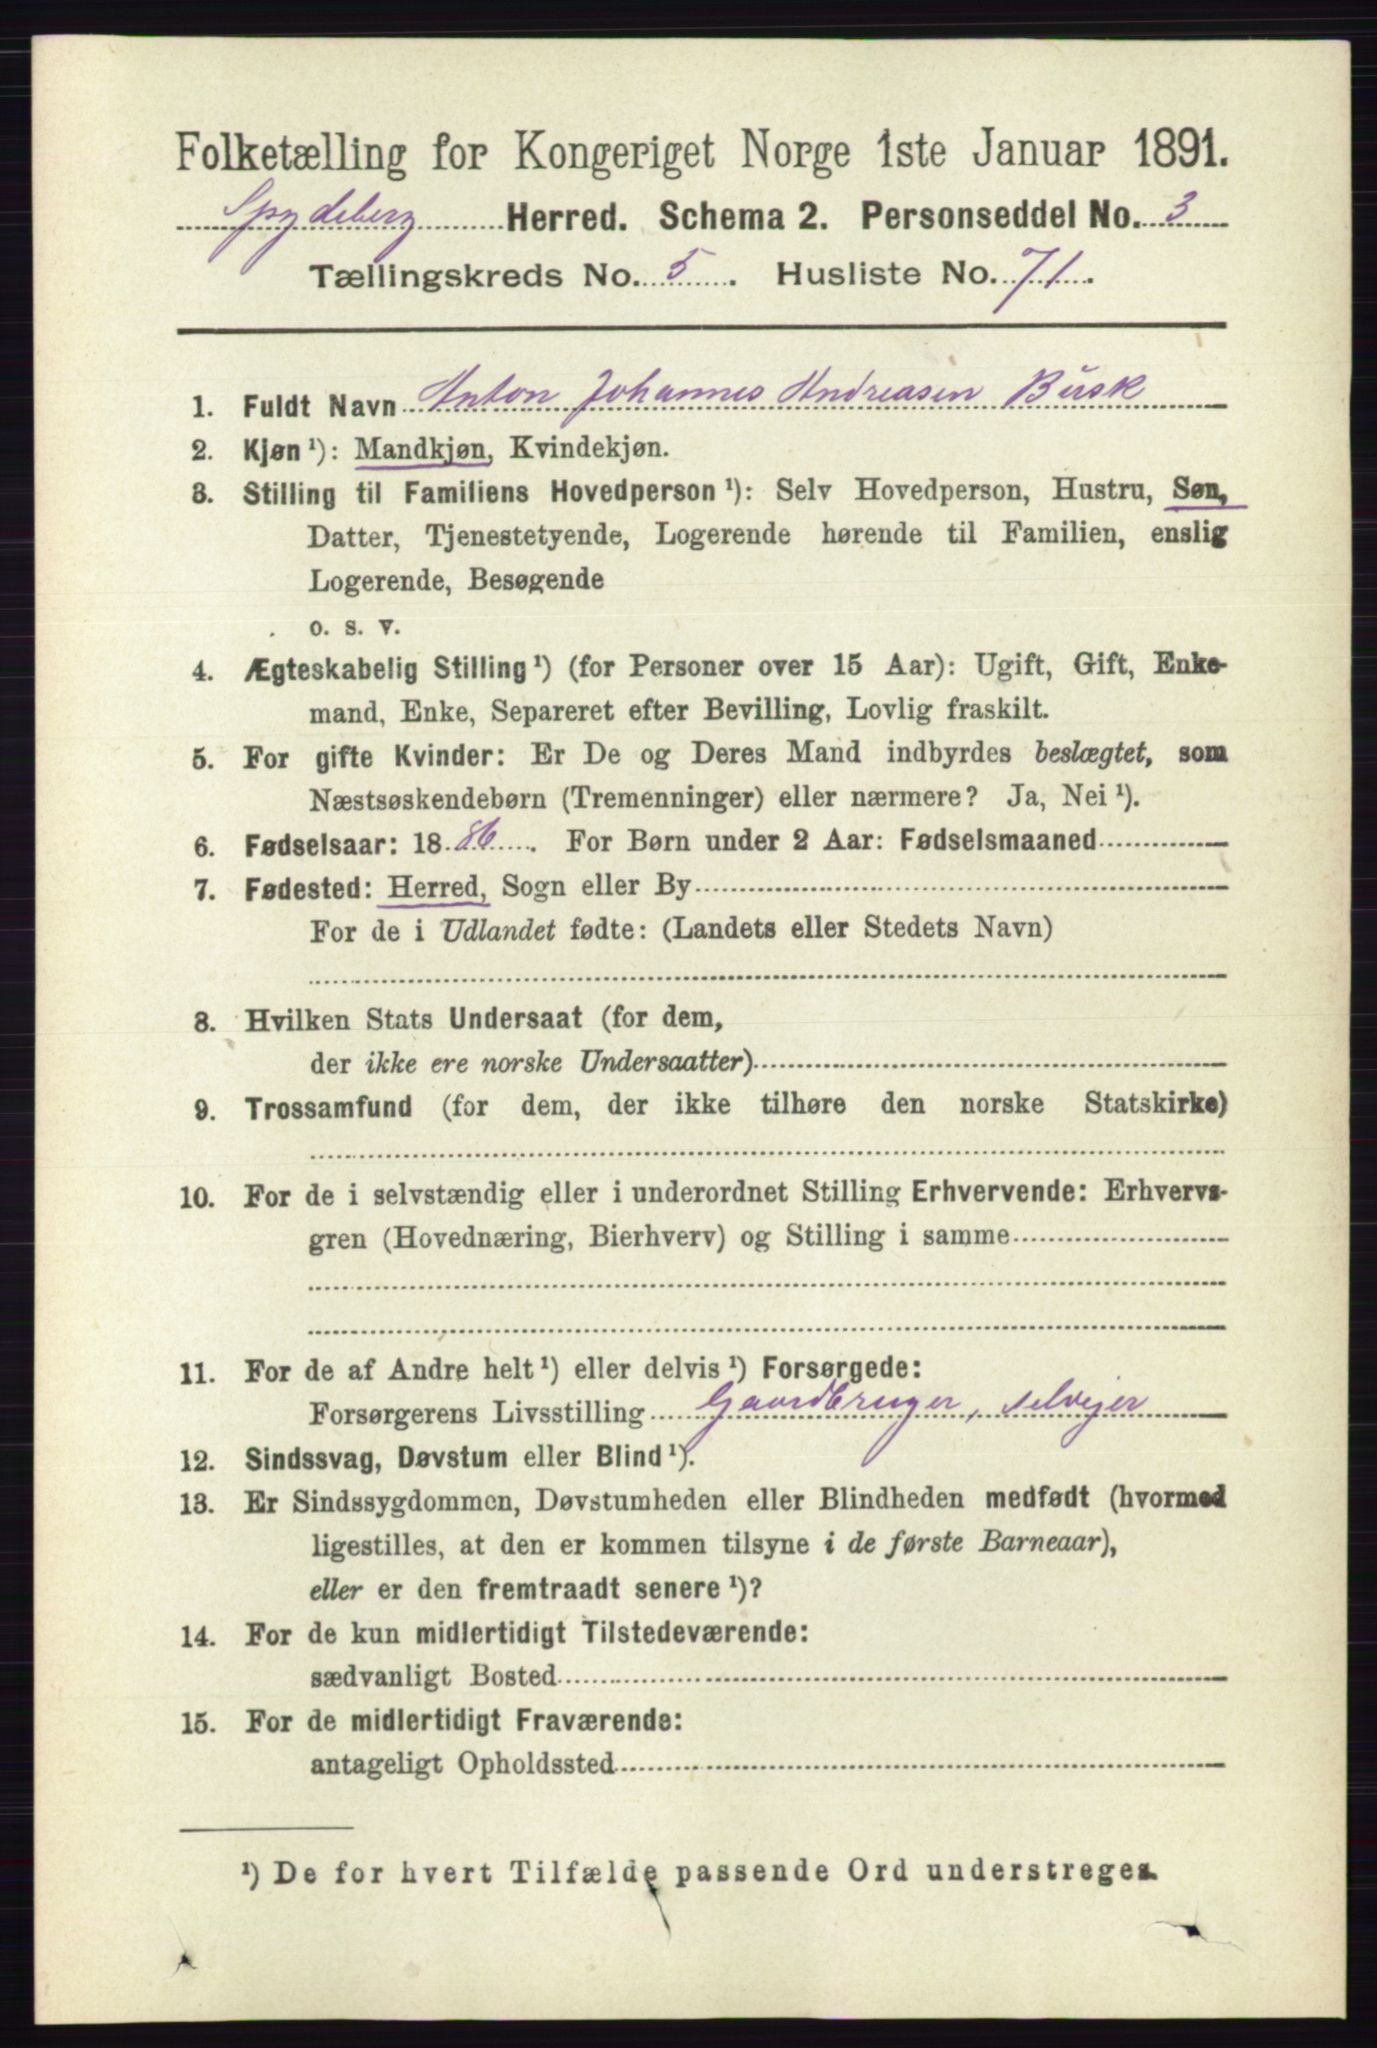 Folketælling for Kongeriget Norge 1ste Januar 1891.
Spydeberg Herred. Schema 2. Personseddel No. 3
Tællingskreds No. 5. Husliste No. 71.
1. Fuldt Navn Anton Johannes Andreasen Busk
2. Kjøn ¹): Mandkjøn, Kvindekjøn.
3. Stilling til Familiens Hovedperson ¹): Selv Hovedperson, Hustru, Søn,
Datter, Tjenestetyende, Logerende hørende til Familien, enslig
Logerende, Besøgende
o. s. v.
4. Ægteskabelig Stilling ¹) (for Personer over 15 Aar): Ugift, Gift, Enke-
mand, Enke, Separeret efter Bevilling, Lovlig fraskilt.
5. For gifte Kvinder: Er De og Deres Mand indbyrdes beslægtet, som
Næstsøskendebørn (Tremenninger) eller nærmere? Ja, Nei ¹).
6. Fødselsaar: 1886. For Børn under 2 Aar: Fødselsmaaned
7. Fødested: Herred, Sogn eller By
For de i Udlandet fødte: (Landets eller Stedets Navn)
8. Hvilken Stats Undersaat (for dem,
der ikke ere norske Undersaatter)
9. Trossamfund (for dem, der ikke tilhøre den norske Statskirke)
10. For de i selvstændig eller i underordnet Stilling Erhvervende: Erhvervs-
gren (Hovednæring, Bierhverv) og Stilling i samme
11. For de af Andre helt ¹) eller delvis ¹) Forsørgede:
Forsørgerens Livsstilling Gaardbruger, selvejer
12. Sindssvag, Døvstum eller Blind ¹).
13. Er Sindssygdommen, Døvstumheden eller Blindheden medfødt (hvormed
ligestilles, at den er kommen tilsyne i de første Barneaar),
eller er den fremtraadt senere ¹)?
14. For de kun midlertidigt Tilstedeværende:
sædvanligt Bosted
15. For de midlertidigt Fraværende:
antageligt Opholdssted
¹) De for hvert Tilfælde passende Ord understreges.